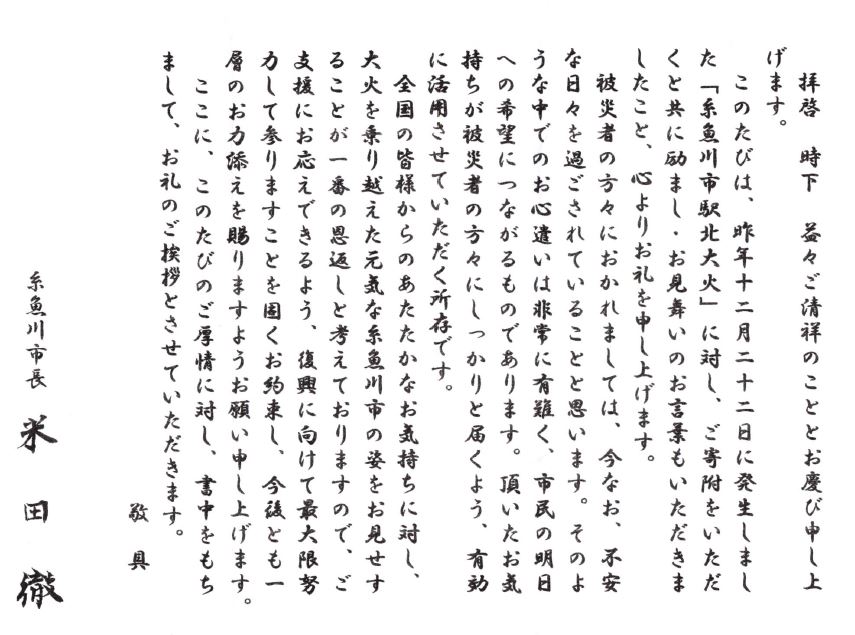 拝啓　時下　益々ご清祥のこととお慶び申し上
げます。
このたびは、昨年十二月二十二日に発生しまし
た「糸魚川市駅北大火」に対し、ご寄附をいただ
くと共に励まし・お見舞いのお言葉もいただきま
したこと、心よりお礼を申し上げます。
被災者の方々におかれましては、今なお、不安
な日々を過ごされていることと思います。そのよ
うな中でのお心遣いは非常に有難く、市民の明日
への希望につながるものであります。頂いたお気
持ちが被災者の方々にしっかりと届くよう、有効
に活用させていただく所存です。
全国の皆様からのあたたかなお気持ちに対し、
大火を乗り越えた元気な糸魚川市の姿をお見せす
ることが一番の恩返しと考えておりますので、ご
支援にお応えできるよう、復興に向けて最大限努
力して参りますことを固くお約束し、今後とも一
層のお力添えを賜りますようお願い申し上げます。
ここに、このたびのご厚情に対し、書中をもち
まして、お礼のご挨拶とさせていただきます。
敬具
糸魚川市長　米田徹